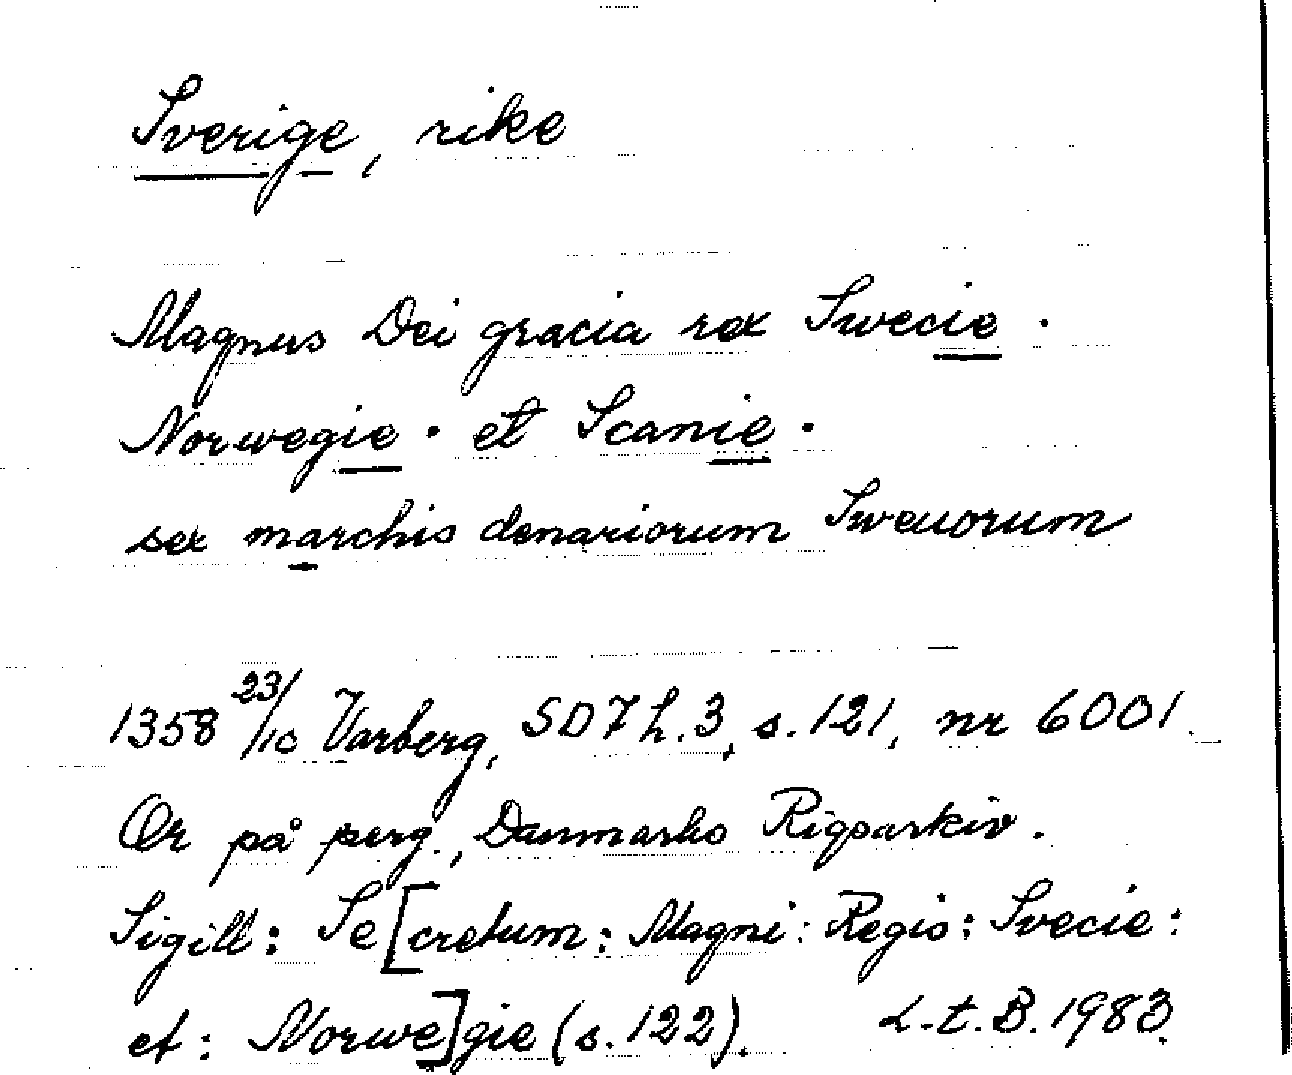 Sverige, rike
Magnus Dei gracia rex Swecie ·
Norwegie · et Scanie ·
sex marchis denariorum Sweuorum
1358 23/10 Varberg, SD 7 h. 3, s. 121, nr 6001.
Or på perg., Danmarks Rigsarkiv.
Sigill: Se[cretum: Magni: Regis: Svecie:
et: Norwe]gie (s. 122). L-t. B. 1983.